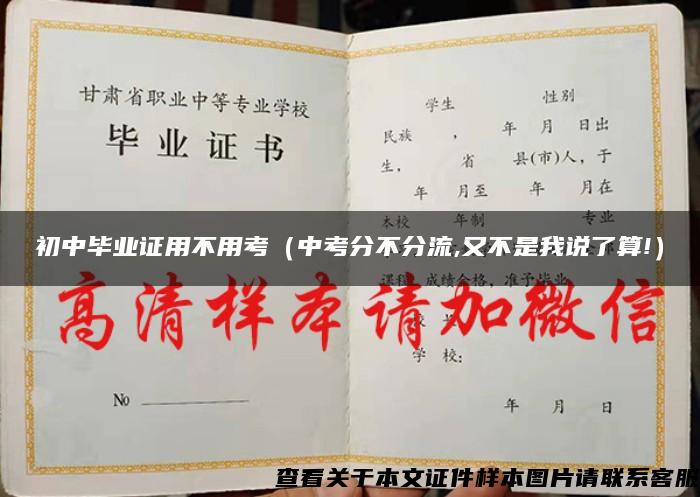 甘肃省职业中等专业学校
毕业证书
No
学生 性别
民族 , 年 月 日出
生, 省 县(市)人,于
年 月至 年 月在
本校 年制 专业
初中毕业证用不用考（中考分不分流,又不是我说了算!）
课程,成绩合格,准予毕业
高清样本请加微信
学 校:
年 月 日
查看关于本文证件样本图片请联系客服